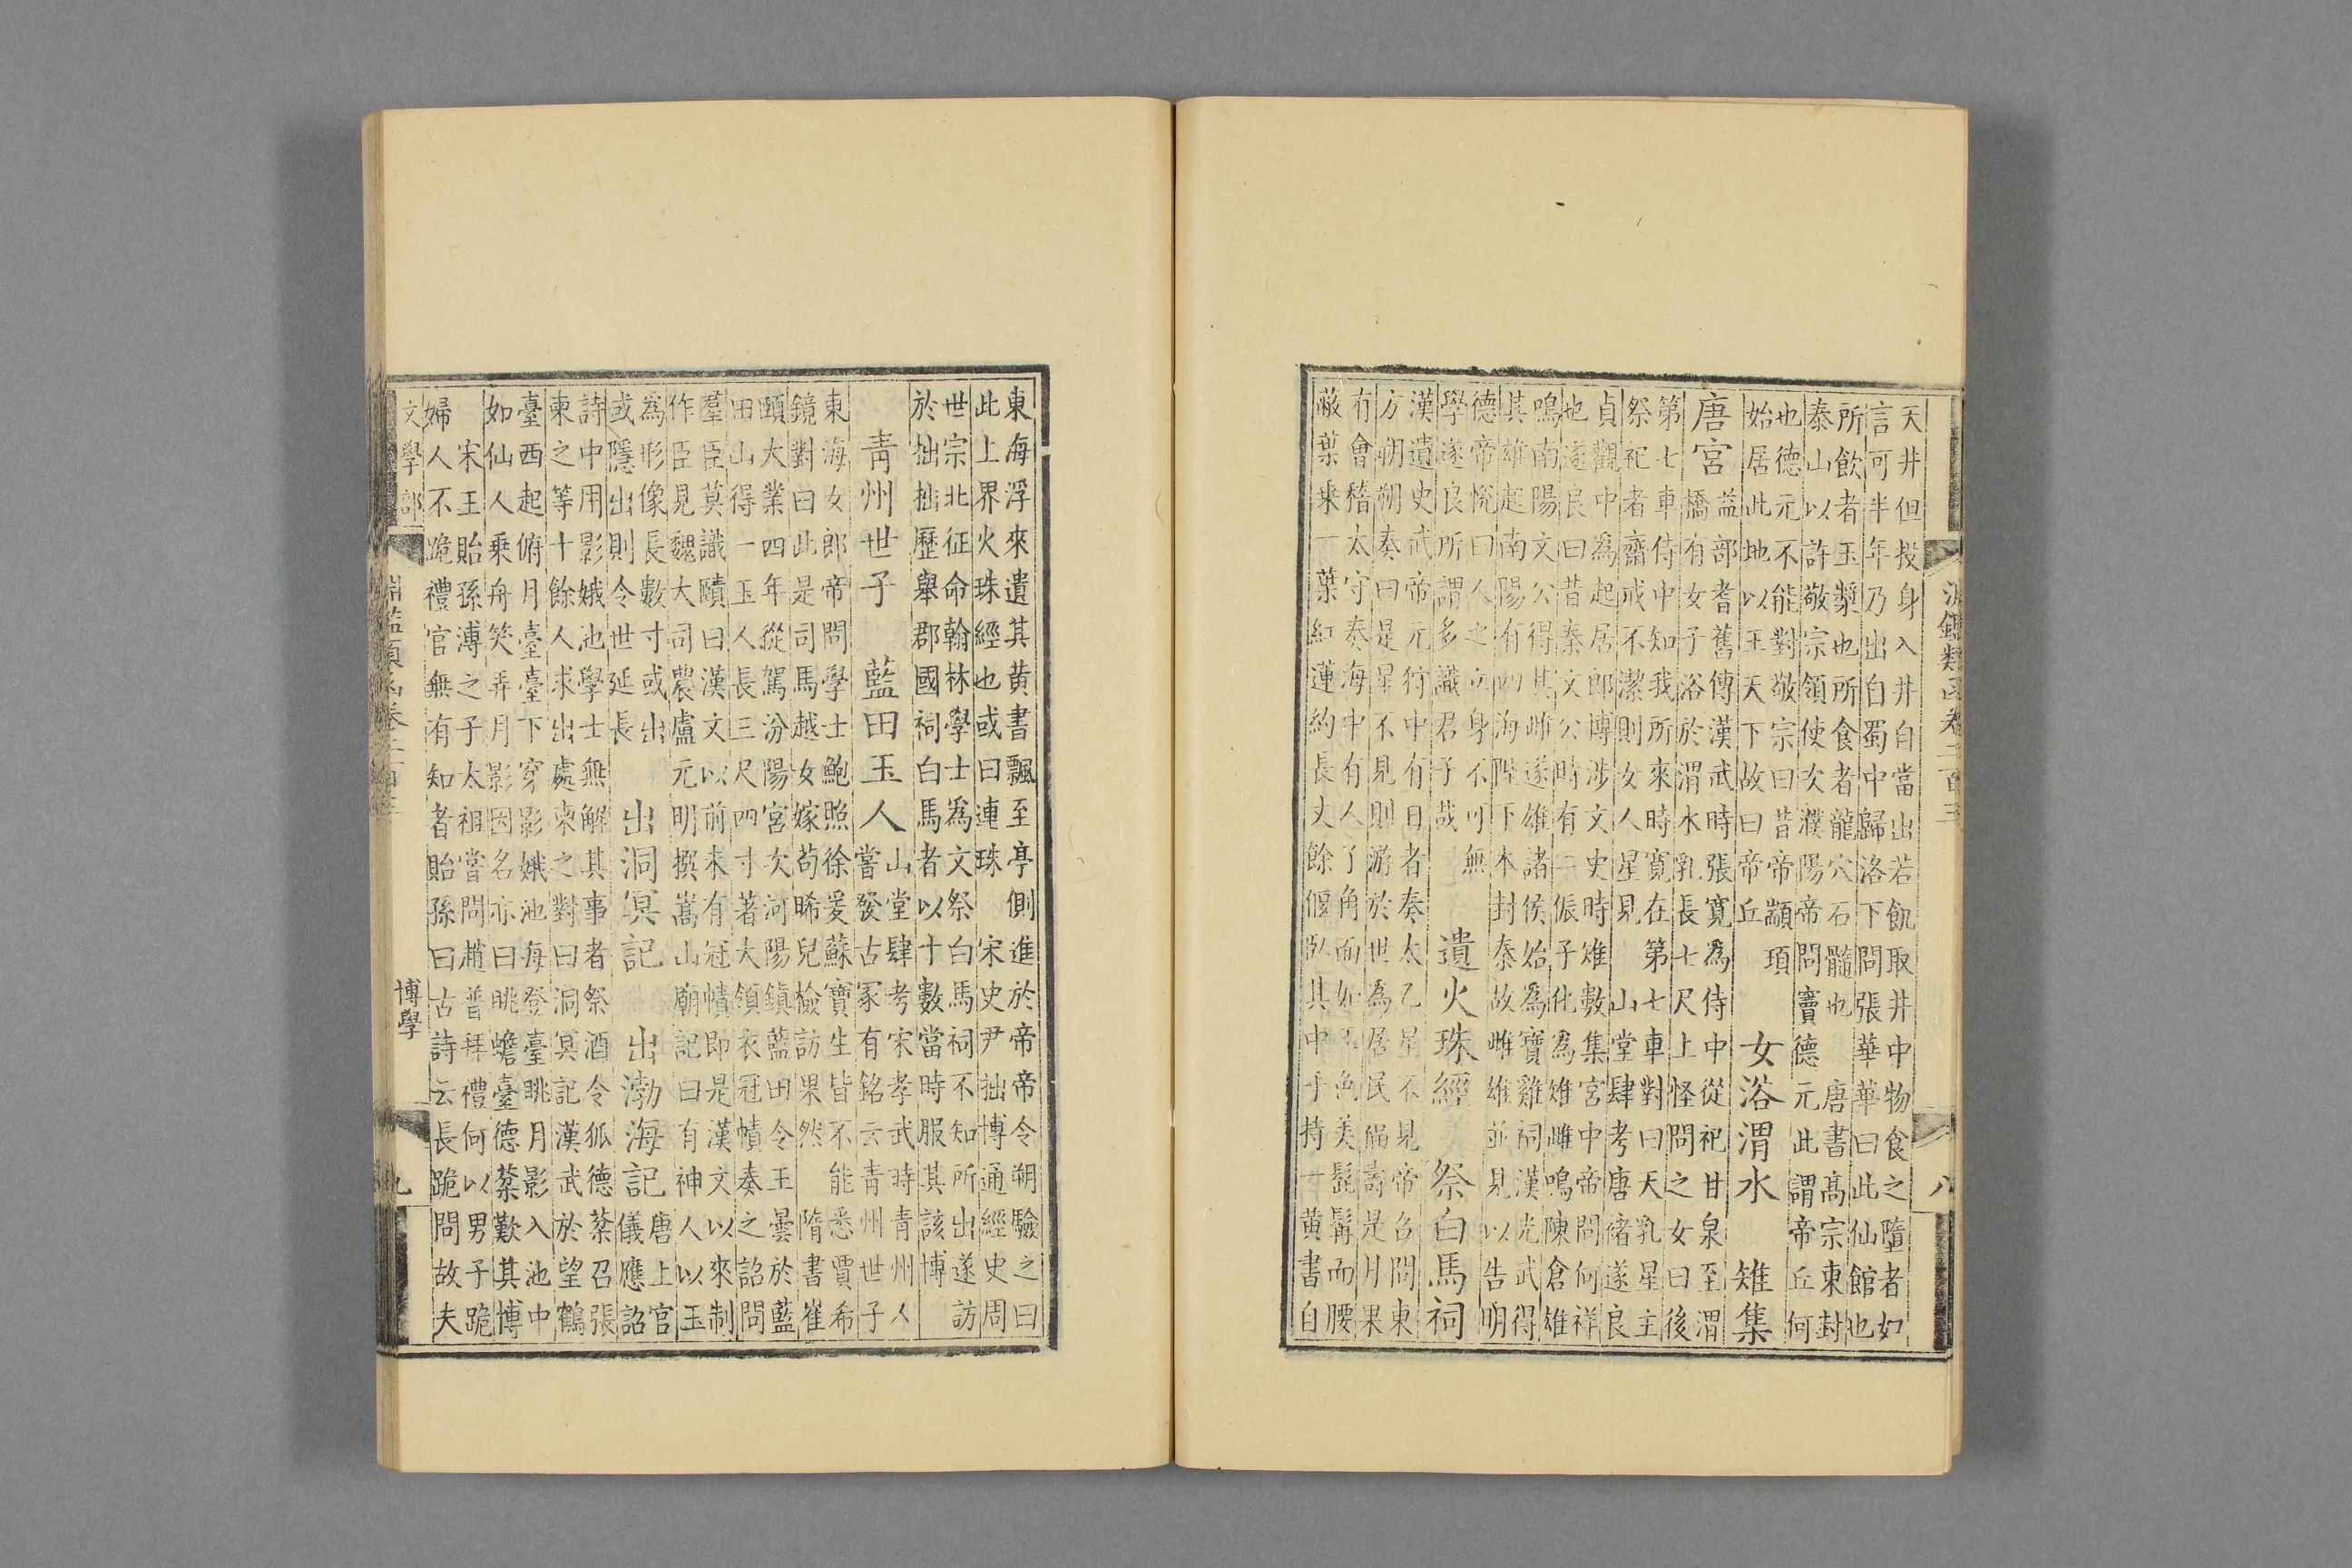 淵鑑類函卷二百三　八
天井但投身入井自當出若飢取井中物食之墮者如
言可半年乃出自蜀中歸洛下問張華華曰此仙館也
所飲者玉漿也所食者龍穴石髓也　唐書高宗東封
泰山以許敬宗領使次濮陽帝問竇德元此謂帝丘何
也德元不能對敬宗曰昔帝顓頊
始居此地以王天下故曰帝丘
女浴渭水　雉集
唐宮
益部耆舊傳漢武時張寬為侍中從祀甘泉至渭
橋有女子浴於渭水乳長七尺上怪問之女曰後
第七車侍中知我所來時寬在第七車對曰天乳星主
祭祀者齋戒不潔則女人星見　山堂肆考唐褚遂良
貞觀中為起居郎博涉文史時雉數集宮中帝問何祥
也遂良曰昔秦文公時有二侲子化為雉雌鳴陳倉雄
鳴南陽文公得其雌遂雄諸侯始為寶雞祠漢光武得
其雄起南陽有四海陛下本封秦故雌雄並見以告明
德帝悅曰人之立身不可無
學遂良所謂多識君子哉
遺火珠經　祭白馬祠
漢遺史武帝元狩中有日者奏太乙星不見帝召問東
方朔朔奏曰是星不見則游於世為居民福壽是月果
有會稽太守奏海中有人了角面如玉色美髭髯而腰
蔽葉乘一葉紅蓮約長丈餘偃臥其中手持一黃書自
東海浮來遺其黃書飄至亭側進於帝帝令朔驗之曰
此上界火珠經也或曰連珠　宋史尹拙博通經史周
世宗北征命翰林學士為文祭白馬祠不知所出遂訪
於拙拙歷舉郡國祠白馬者以十數當時服其該博
青州世子　藍田玉人
山堂肆考宋孝武時青州人
嘗發古冢有銘云青州世子
東海女郎帝問學士鮑照徐爰蘇寶生皆不能悉賈希
鏡對曰此是司馬越女嫁苟晞兒檢訪果然　隋書崔
頤大業四年從駕汾陽宮次河陽鎮藍田令王曇於藍
田山得一玉人長三尺四寸著大領衣冠幘奏之詔問
羣臣莫識賾曰漢文以前未有冠幘即是漢文以來制
作臣見魏大司農盧元明撰嵩山廟記曰有神人以玉
為形像長數寸或出
或隱出則令世延長
出洞冥記　出渤海記
唐上官
儀應詔
詩中用影娥池學士無解其事者祭酒令狐德棻召張
柬之等十餘人求出處柬之對曰洞冥記漢武於望鶴
臺西起俯月臺臺下穿影娥池每登臺眺月影入池中
如仙人乘舟笑弄月影因名亦曰眺蟾臺德棻歎其博
宋王貽孫溥之子太祖嘗問趙普拜禮何以男子跪
婦人不跪禮官無有知者貽孫曰古詩云長跪問故夫
文學部　淵鑑類函卷二百三　博學　九